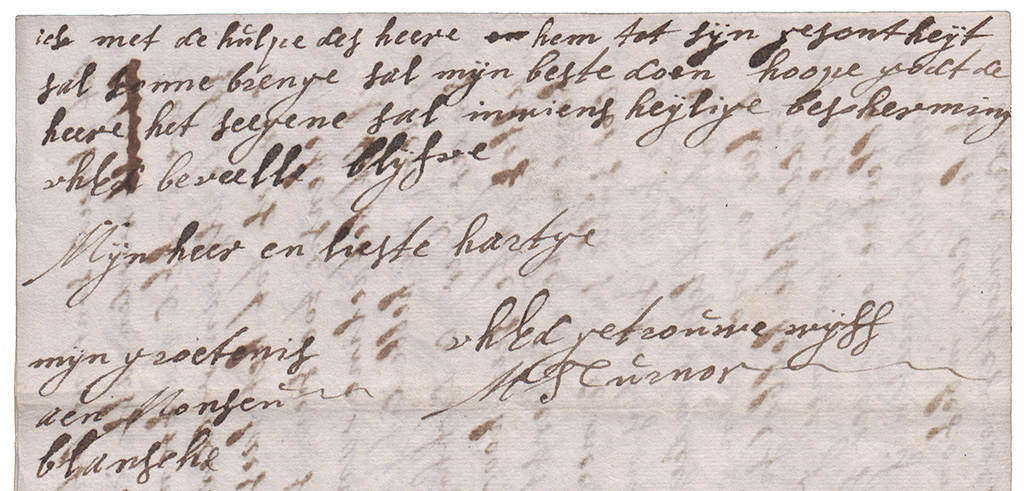 ick met de hulpe des heere hem tot sijn gesontheijt
sal konne brenge sal mijn beste doen hoope godt de
heere het seegene sal in wiens heijlige bescherming
uhEd beveelle blijfve
Mijn heer en lieste hartye
uhEd getrouwe wijff
M Turnor
mijn groetenis
aen Monseu
blansche